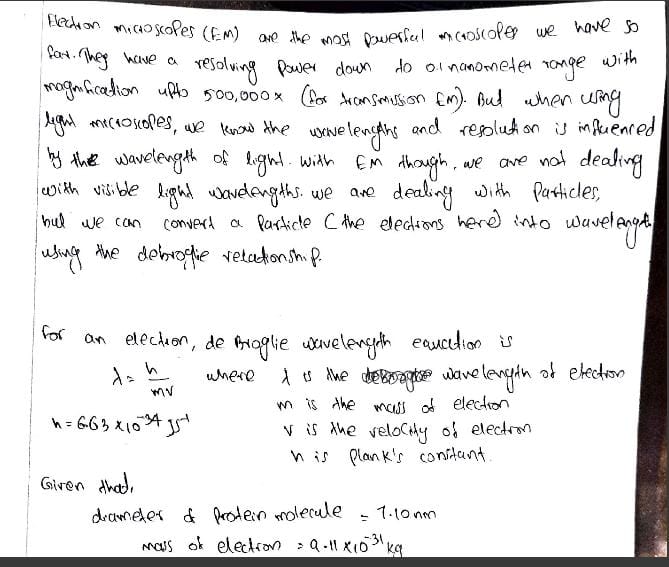 Electron microscopes (EM) are the most powerful microscopes we have so
far. They have a resolving power down to 0.1 nanometer range with
magnification upto 500,000x (for transmission Em). But when using
light microscopes, we know the wavelengths and resolution is influenced
by the wavelength of light. With EM though, we are not dealing
with visible light wavelengths. we are dealing with Particles,
but we can convert a Particle (the electrons here) into wavelength
using the debroglie relationship.
For an electron, de Broglie wavelength equation is
λ = h/mv where λ is the wavelength of electron
m is the mass of electron
h = 6.63 × 10^-34 Js^-1 v is the velocity of electron
h is Plank's constant.
Given that,
diameter of Protein molecule = 7.10 nm
mass of electron = 9.11 × 10^-31 kg